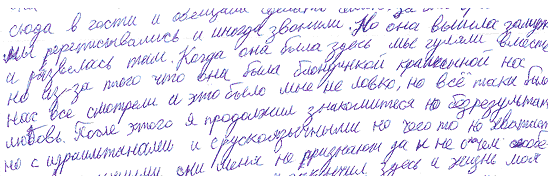 сюда в гости и обещали
мы переписывались и иногда звонили. Но она вышла замуж
и развелась там. Когда она была здесь мы гуляли вместе
но из-за того что она была блондинкой крашенной на
нас все смотрели и это было мне не ловко, но всё таки была
любовь. После этого я продолжил знакомиться но безрезультат
но с израильтянами и с рускоязычными но чего то не хватает
они меня не признают да и не о чем особо
здесь и жизнь моя